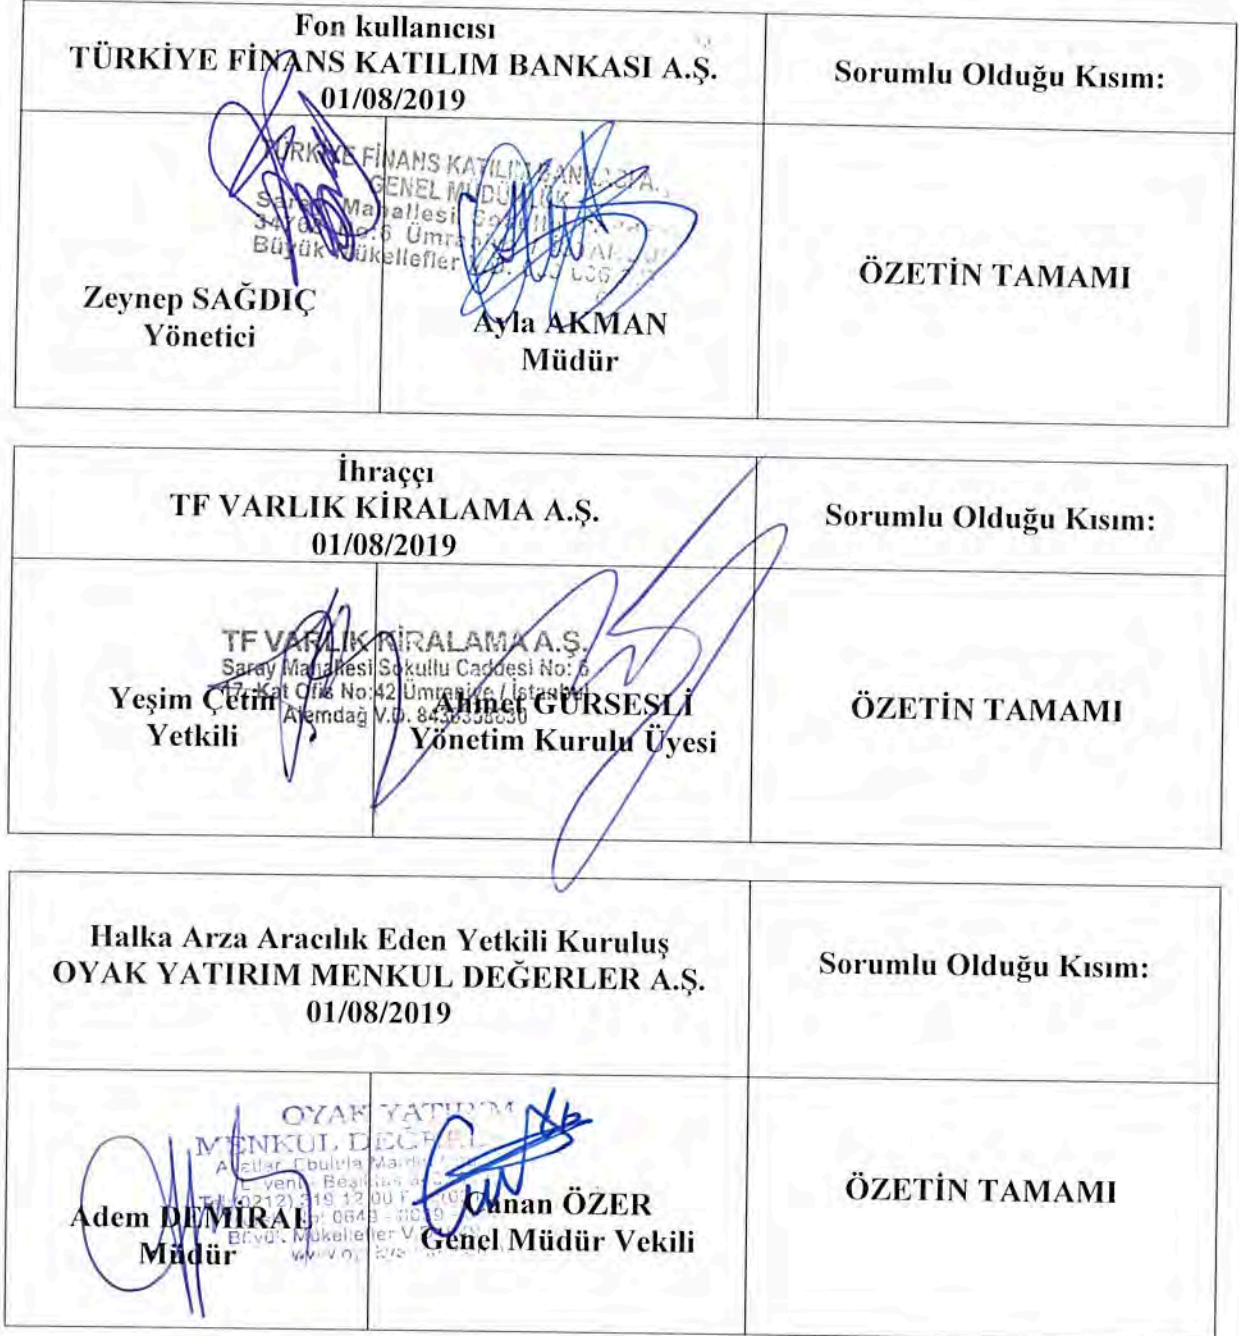 Fon kullanıcısı
TÜRKİYE FİNANS KATILIM BANKASI A.Ş.
01/08/2019
Sorumlu Olduğu Kısım:
TÜRKİYE FİNANS KATILIM BANKASI A.
GENEL MÜDÜRLÜK
Saray Mahallesi
No:6 Ümraniye
Büyük Mükellefler
Zeynep SAĞDIÇ
Yönetici
Ayla AKMAN
Müdür
ÖZETİN TAMAMI
İhraççı
TF VARLIK KİRALAMA A.Ş.
01/08/2019
Sorumlu Olduğu Kısım:
TF VARLIK KİRALAMA A.Ş.
Saray Mahallesi Sokullu Caddesi No: 6
Kat Ofis No:42 Ümraniye / İstanbul
Alemdağ V.D.
Yeşim Çetin
Yetkili
Ahmet GÜRSESLİ
Yönetim Kurulu Üyesi
ÖZETİN TAMAMI
Halka Arza Aracılık Eden Yetkili Kuruluş
OYAK YATIRIM MENKUL DEĞERLER A.Ş.
01/08/2019
Sorumlu Olduğu Kısım:
OYAK YATIRIM
MENKUL
(0212) 319 12 00
Mükellefler
Adem DEMİRAL
Müdür
Canan ÖZER
Genel Müdür Vekili
ÖZETİN TAMAMI